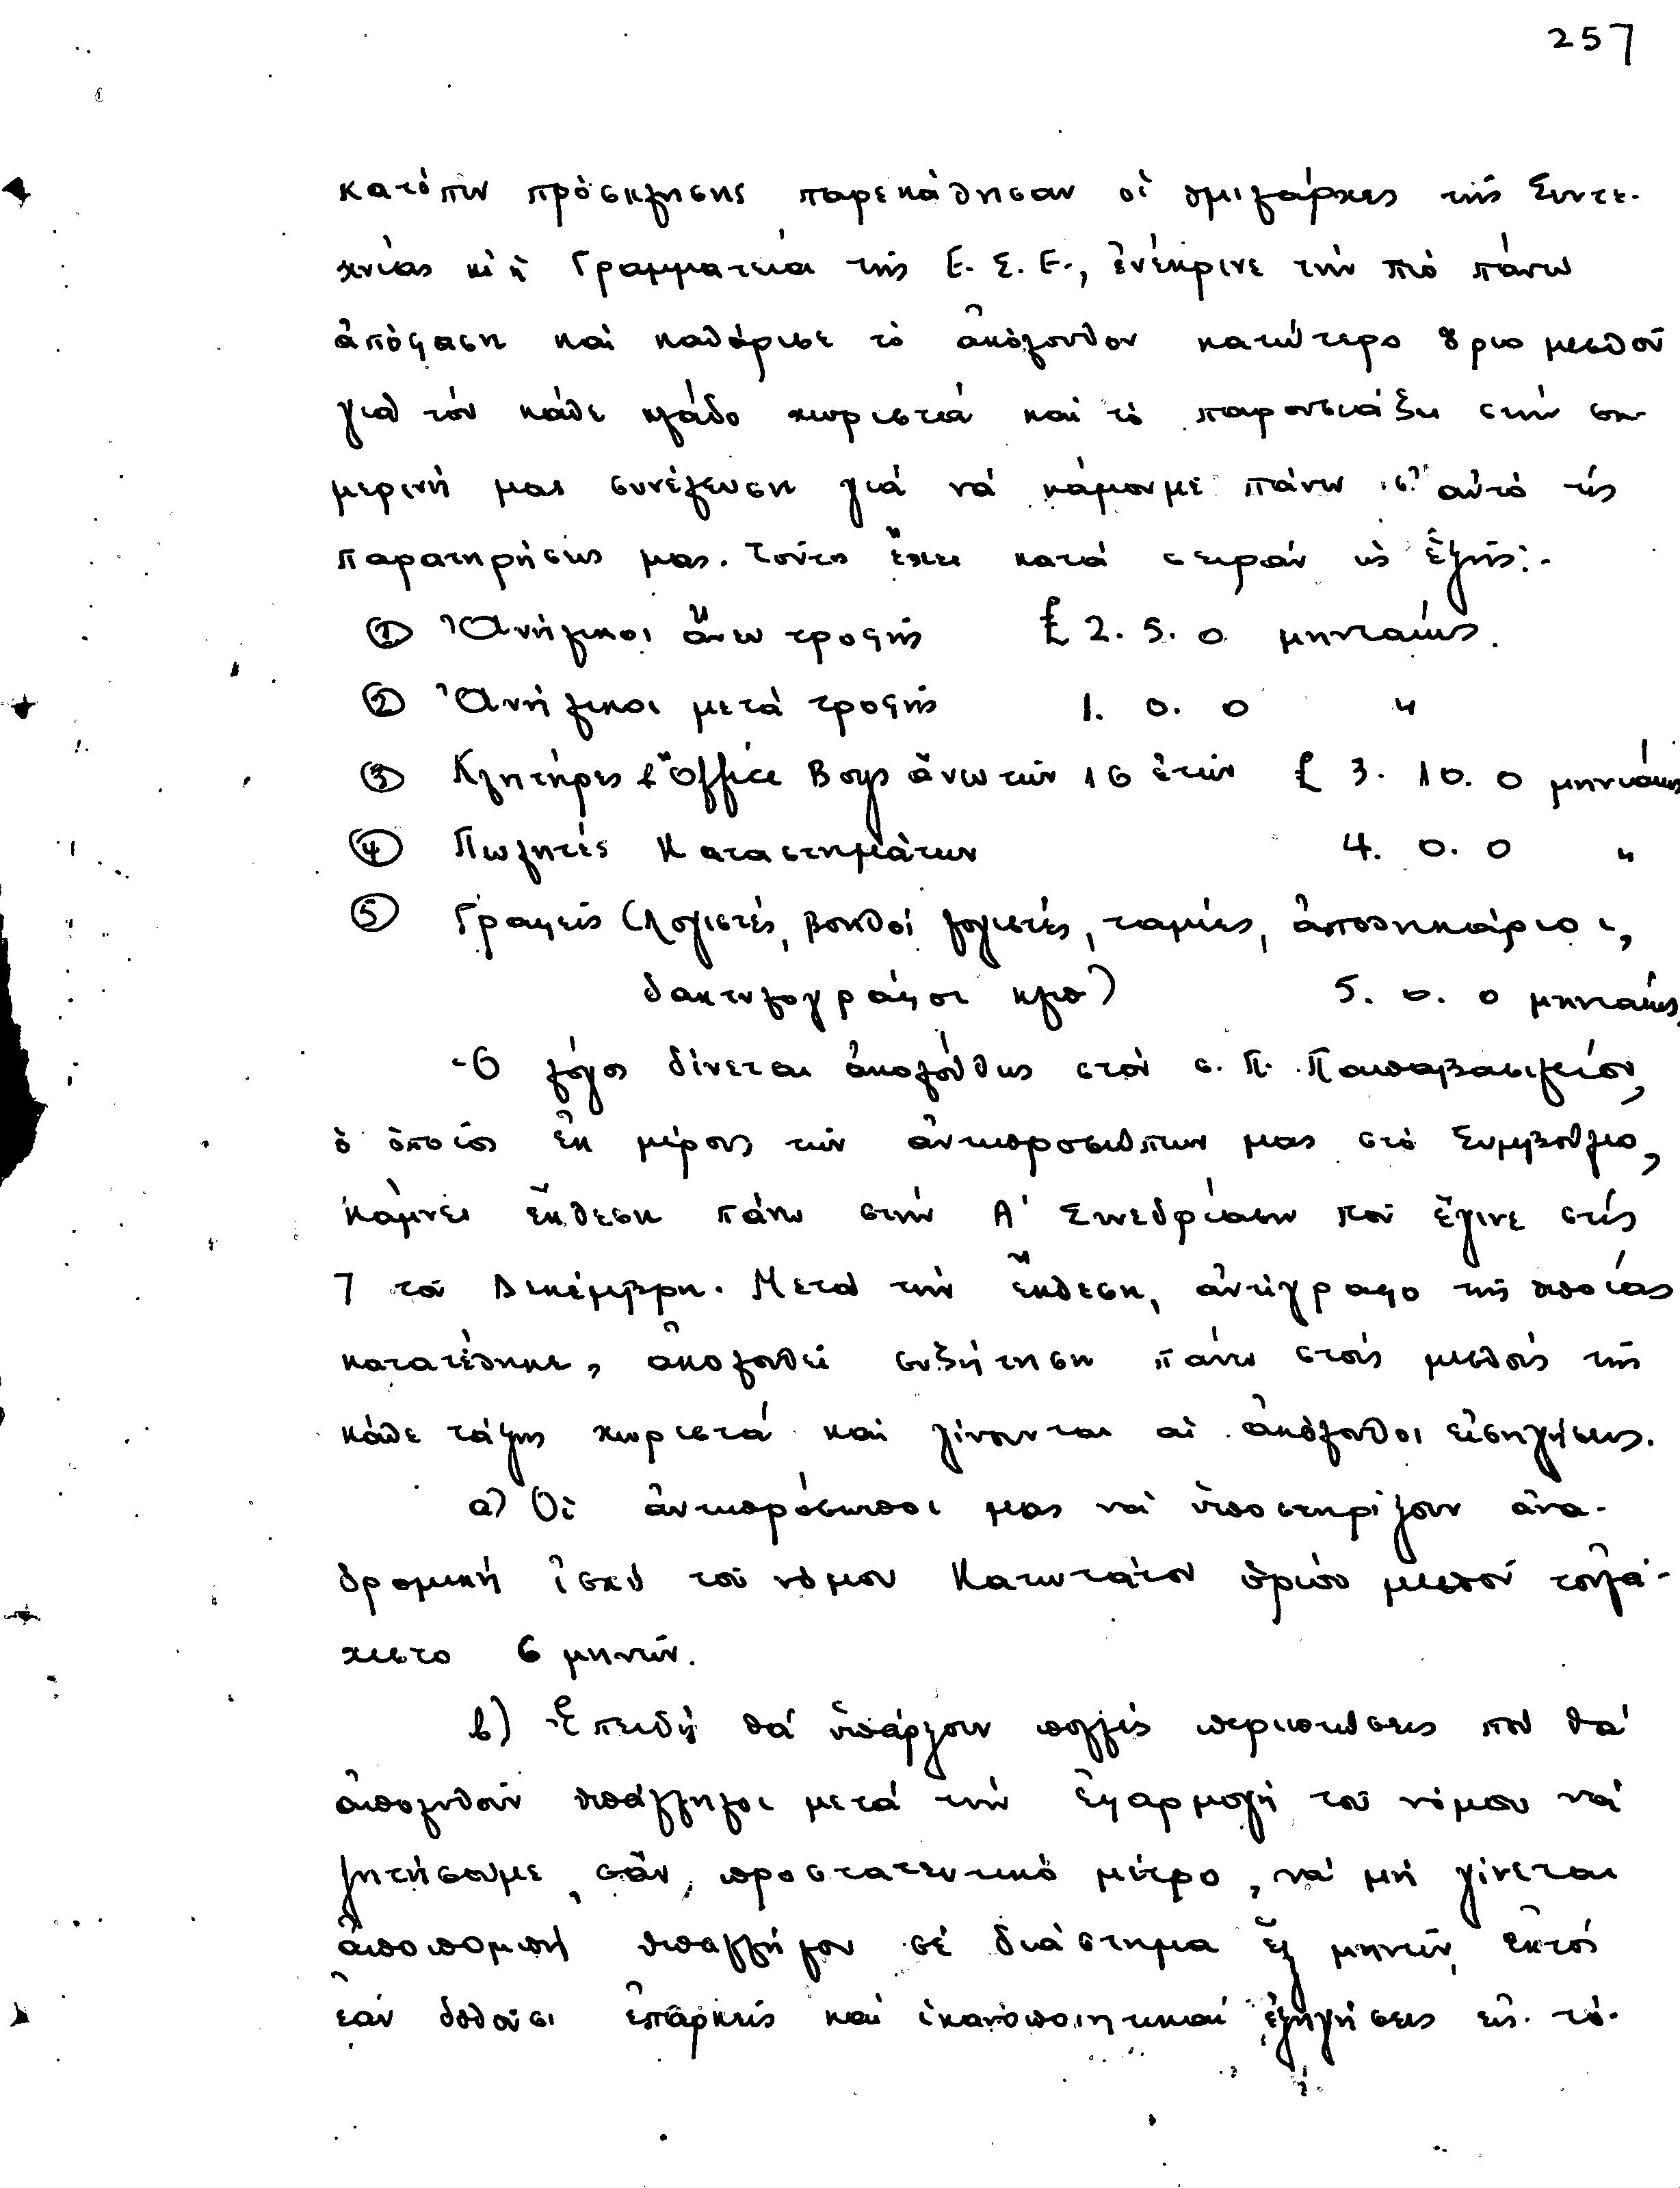 257
κατόπιν πρόσκλησης παρεκάθησαν οἱ ὁμιλάρχες τῆς Συντε-
χνίας κι' ἡ Γραμματεία τῆς Ε. Σ. Ε., ἐνέκρινε τήν πιό πάνω
ἀπόφαση καί καθόρισε τό ἀκόλουθον κατώτερο ὅριο μισθοῦ
γιά τόν κάθε κλάδο χωριστά καί τό παρουσιάζει στήν ση-
μερινή μας συνέλευση γιά νά κάμουμε πάνω σ' αὐτό τίς
παρατηρήσεις μας. Τοῦτο ἔχει κατά σειράν ὡς ἑξῆς:-
① Ἀνήλικοι ἄνευ τροφῆς £ 2. 5. 0 μηνιαίως.
② Ἀνήλικοι μετά τροφῆς 1. 0. 0 "
③ Κλητήρες & Office Boys ἄνω τῶν 16 ἐτῶν £ 3. 10. 0 μηνιαίως
④ Πωλητές Καταστημάτων 4. 0. 0 "
⑤ Γραφείς (λογιστές, βοηθοί λογιστές, ταμίες, ἀποθηκάριοι,
δακτυλογράφοι κλπ) 5. 0. 0 μηνιαίως
Ὁ λόγος δίνεται ἀκολούθως στόν σ. Π. Παπαβασιλείου,
ὁ ὁποῖος ἐκ μέρους τῶν ἀντιπροσώπων μας στό Συμβούλιο,
κάμνει ἔκθεση πάνω στήν Α' Συνεδρίαση πού ἔγινε στίς
7 τοῦ Δεκέμβρη. Μετά τήν ἔκθεση, ἀντίγραφο τῆς ὁποίας
κατατέθηκε, ἀκολουθεῖ συζήτηση πάνω στούς μισθούς τῆς
κάθε τάξης χωριστά καί γίνονται αἱ ἀκόλουθοι εἰσηγήσεις.
α) Οἱ ἀντιπρόσωποι μας νά ὑποστηρίξουν ἀνα-
δρομική ἰσχύ τοῦ νόμου Κατωτάτου ὁρίου μισθοῦ τουλά-
χιστο 6 μηνῶν.
β) Ἐπειδή θά ὑπάρξουν πολλές περιπτώσεις πού θά
ἀπολυθοῦν ὑπάλληλοι μετά τήν ἐφαρμογή τοῦ νόμου νά
ζητήσουμε, σάν προστατευτικό μέτρο, νά μή γίνεται
ἀποπομπή ὑπαλλήλου σέ διάστημα ἕξ μηνῶν, ἐκτός
ἐάν δοθοῦσι ἐπαρκεῖς καί ἱκανοποιητικαί ἐξηγήσεις εἰς τό